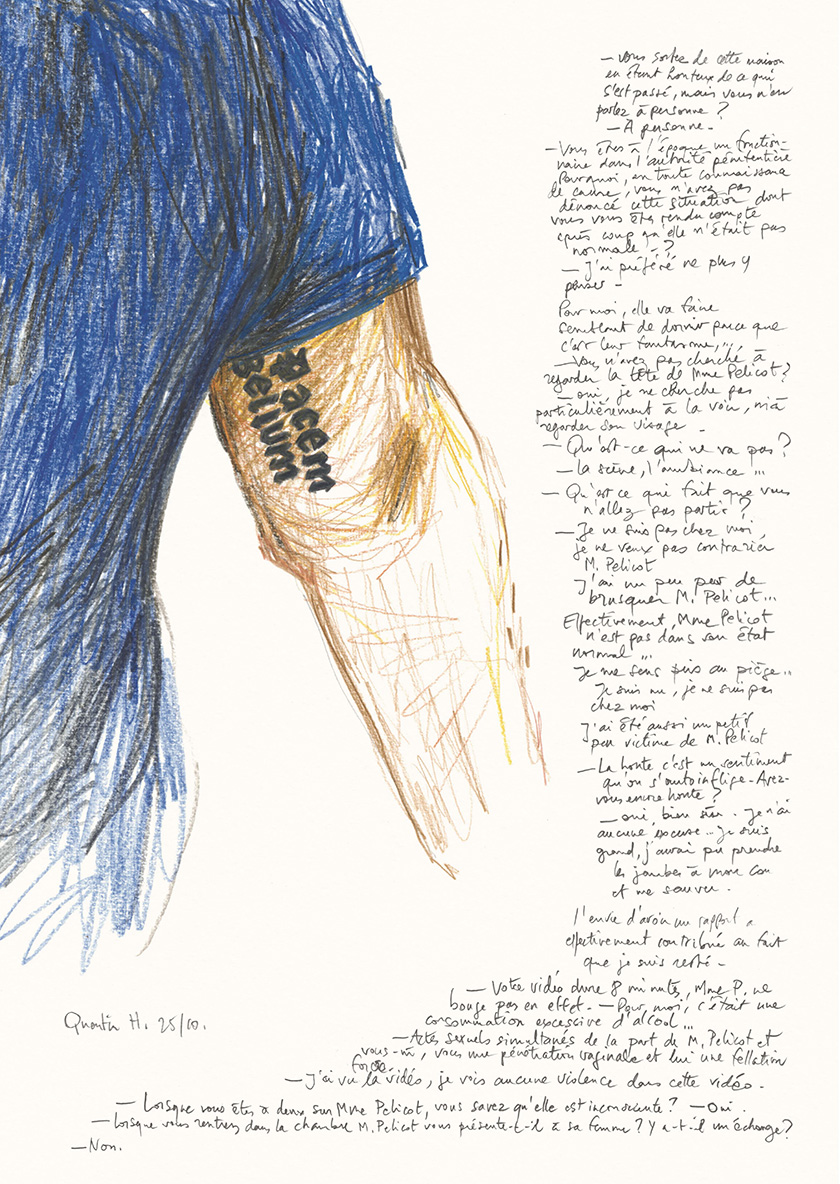 Pacem
Bellum
— Vous sortez de cette maison
en étant honteux de ce qui
s'est passé, mais vous n'en
parlez à personne ?
— A personne -
— Vous êtes à l'époque un fonction-
naire dans l'autorité pénitentière
Pourquoi, en toute connaissance
de cause, vous n'avez pas
dénoncé cette situation dont
vous vous êtes rendu compte
après coup qu'elle n'était pas
normale - ?
— J'ai préféré ne plus y
penser -
Pour moi, elle va faire
semblant de dormir parce que
c'est leur fantasme, ...
— Vous n'avez pas cherché à
regarder la tête de Mme Pelicot ?
— oui, je ne cherche pas
particulièrement à la voir, ni à
regarder son visage -
— Qu'est-ce qui ne va pas ?
— La scène, l'ambiance ...
— Qu'est ce qui fait que vous
n'allez pas partir ?
— Je ne suis pas chez moi,
je ne veux pas contrarier
M. Pelicot
J'ai un peu peur de
brusquer M. Pelicot ...
Effectivement, Mme Pelicot
n'est pas dans son état
normal ...
Je me sens pris au piège ..
Je suis nu, je ne suis pas
chez moi
J'ai été aussi un petit
peu victime de M. Pelicot
— La honte c'est un sentiment
qu'on s'autoinflige - Avez-
vous encore honte ?
— oui, bien sûr . Je n'ai
aucune excuse ... Je suis
grand, j'aurai pu prendre
les jambes à mon cou
et me sauver .
l'envie d'avoir un rapport a
effectivement contribué au fait
que je suis resté -
— Votre vidéo dure 8 minutes, Mme P. ne
bouge pas en effet . — Pour moi, c'était une
consommation excessive d'alcool ...
— Actes sexuels simultanés de la part de M. Pelicot et
vous-m, vous une pénétration vaginale et lui une fellation
forcée
— J'ai vu la vidéo, je vois aucune violence dans cette vidéo -
— Lorsque vous êtes à deux sur Mme Pelicot, vous savez qu'elle est inconsciente ? — Oui .
— Lorsque vous rentrez dans la chambre M. Pelicot vous présente-t-il à sa femme ? Y a-t-il un échange ?
— Non.
Quentin H. 25/10.